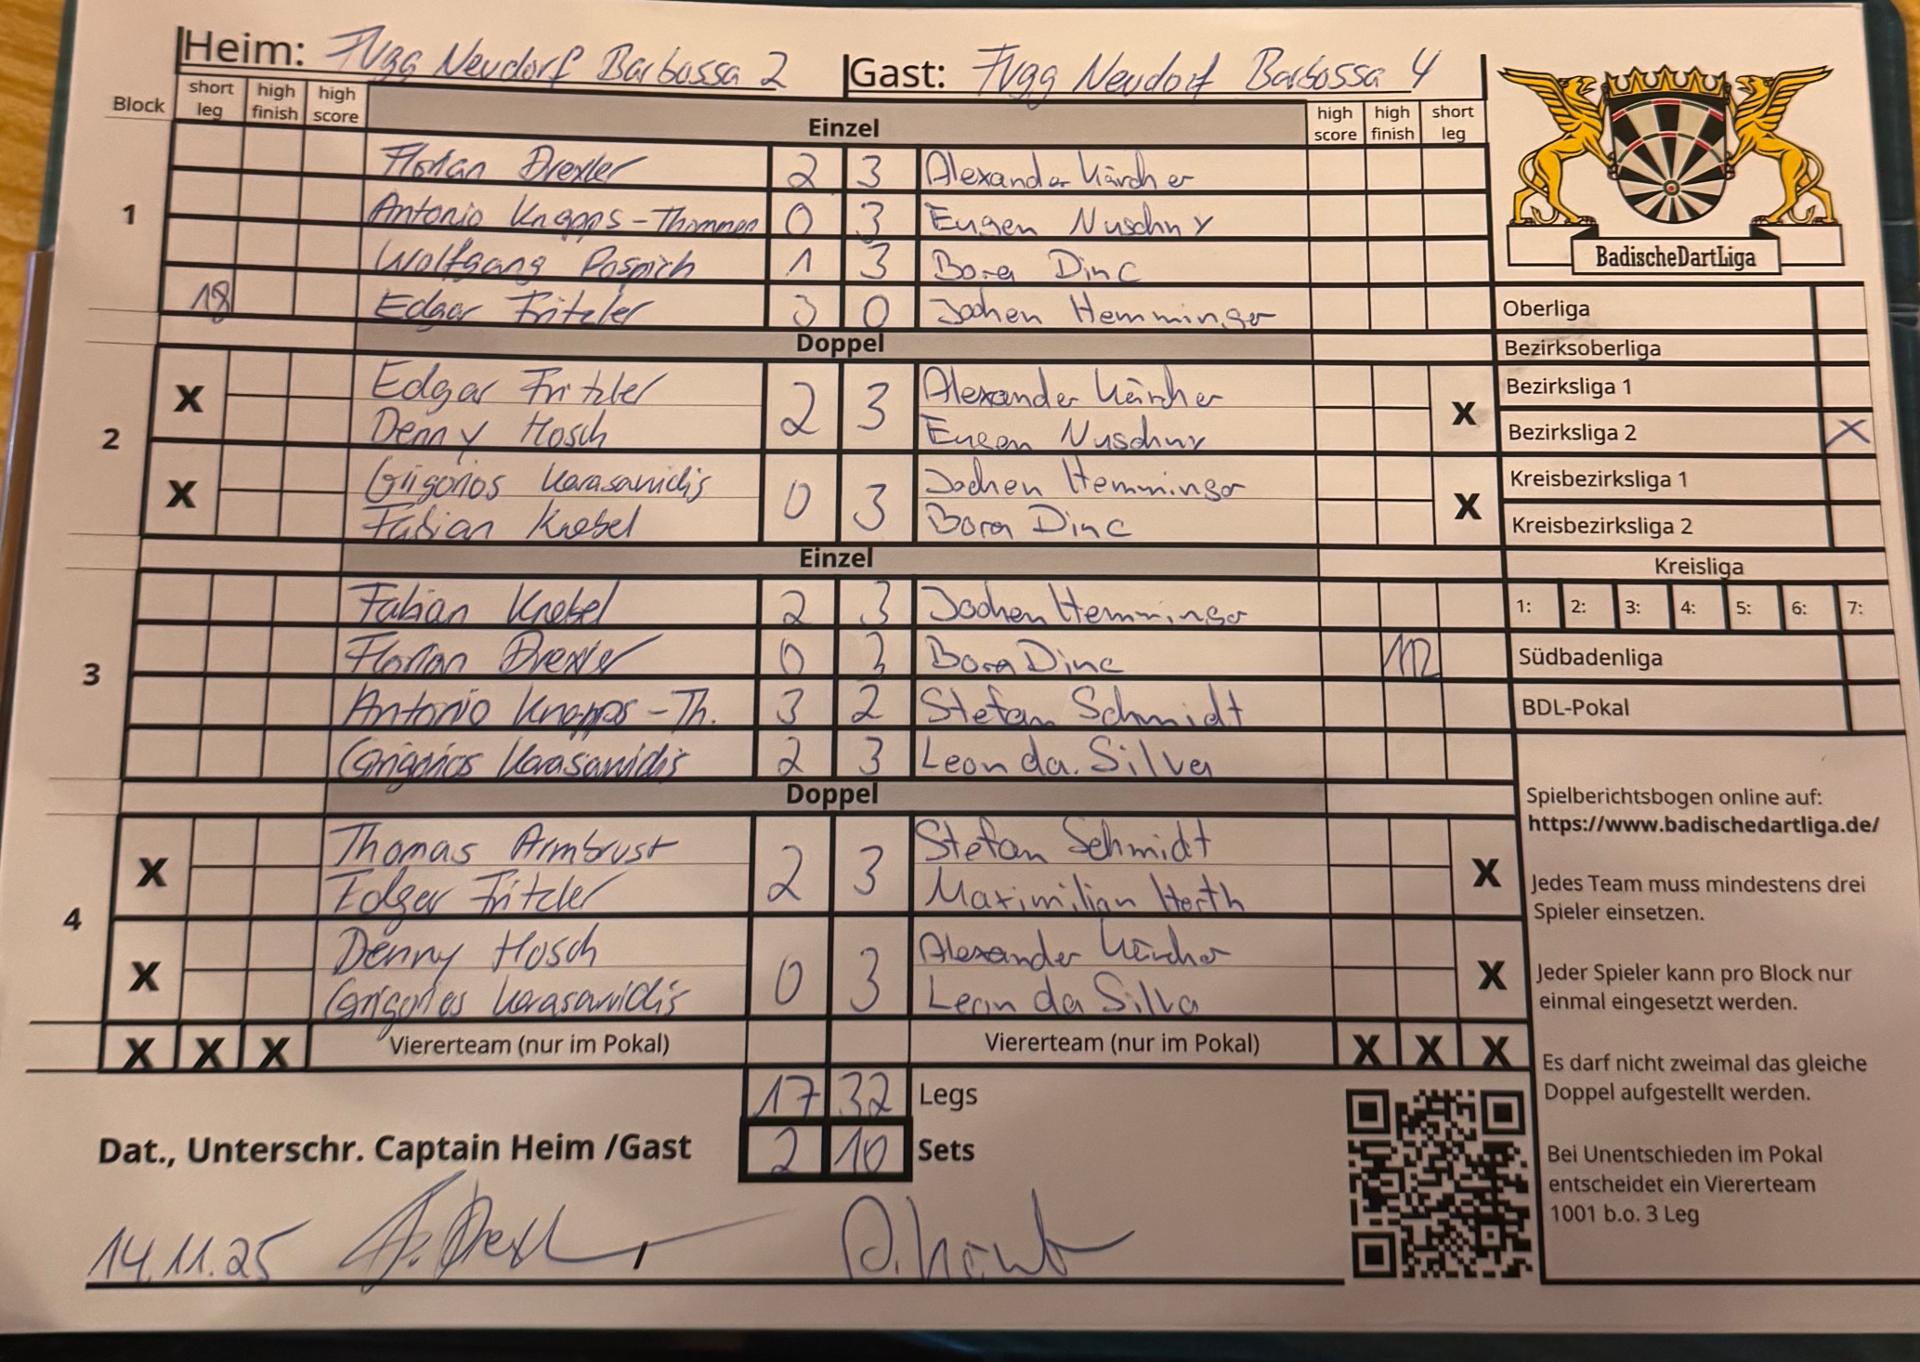 Heim: FVgg Neudorf Barbossa 2 Gast: FVgg Neudorf Barbossa 4
Block short leg high finish high score Einzel high score high finish short leg
1
Florian Drexler 2 3 Alexander Kärcher
Antonio Knapps-Thommen 0 3 Eugen Nuschny
Wolfgang Pospich 1 3 Bora Dinc
18 Edgar Fritzler 3 0 Jochen Hemminger
Doppel
2
X Edgar Fritzler 2 3 Alexander Kärcher X
Denny Hosch Eugen Nuschny
X Grigorios Karasavidis 0 3 Jochen Hemminger X
Fabian Krebel Bora Dinc
Einzel
3
Fabian Krebel 2 3 Jochen Hemminger
Florian Drexler 0 3 Bora Dinc 112
Antonio Knapps-Th. 3 2 Stefan Schmidt
Grigorios Karasavidis 2 3 Leon da Silva
Doppel
4
X Thomas Armbrust 2 3 Stefan Schmidt X
Edgar Fritzler Maximilian Herth
X Denny Hosch 0 3 Alexander Kärcher X
Grigorios Karasavidis Leon da Silva
X X X Viererteam (nur im Pokal) Viererteam (nur im Pokal) X X X
17 32 Legs
Dat., Unterschr. Captain Heim /Gast 2 10 Sets
14.11.25
BadischeDartLiga
Oberliga
Bezirksoberliga
Bezirksliga 1
Bezirksliga 2 X
Kreisbezirksliga 1
Kreisbezirksliga 2
Kreisliga
1: 2: 3: 4: 5: 6: 7:
Südbadenliga
BDL-Pokal
Spielberichtsbogen online auf:
https://www.badischedartliga.de/
Jedes Team muss mindestens drei
Spieler einsetzen.
Jeder Spieler kann pro Block nur
einmal eingesetzt werden.
Es darf nicht zweimal das gleiche
Doppel aufgestellt werden.
Bei Unentschieden im Pokal
entscheidet ein Viererteam
1001 b.o. 3 Leg